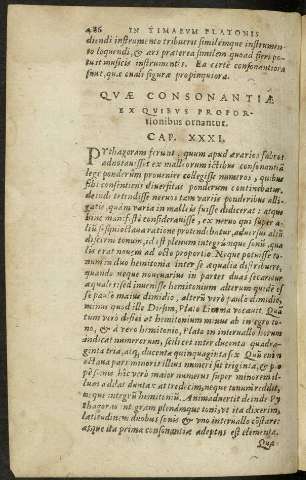 486 IN TIMAEVM PLATONIS
dicendi instrumento tribueret similémque instrumen-
to loquendi, & ars præterea similem quoad fieri po-
tuit musicis instrumentis. Ea certè consonantiora
sunt, quæ cœli figuræ propinquiora.
QVÆ CONSONANTIÆ
EX QVIBVS PROPOR-
tionibus oriantur.
CAP. XXXI.
PYthagoram ferunt, quum apud ærarios fabros
adnotauisset ex malleorum ictibus consonantiã
lege ponderum prouenire collegisse numeros, quibus
sibi consentiens diuersitas ponderum contineba̲tur.
deinde tendisse neruos tam variis ponderibus alli-
gatis, quàm varia in malleis fuisse didicerat: atque
hinc manifestò considerauisse, ex neruo qui super a-
lium sesquioctaua ratione protendebatur, aduersus aliũ
discrim tonum, id est plenum integrúmque sonũ, qua-
lis erat nouem ad octo proportio. Neque potuisse to-
num in duo hemitonia inter se æqualia distribuere,
quando neque nouenarius in partes duas secaretur
æquales: sed inuenisse hemitonium alterum quidẽ es-
se paulo maius dimidio, alterũ verò paulo dimidio,
minus quod ille Diesim, Plato Limma vocauit. Quã
tum verò desit et hemitonium minus ab integro to-
no, & à vero hemitonio, Plato in interuallo horum
indicat numerorum, scilicet inter ducenta quadra-
ginta tria, atq; ducenta quinquaginta sex. Quũ enim
octaua pars minoris illius numeri sit triginta, & pro-
pè semis hic verò maior numerus super minorem il-
lius addat duntaxat tredecim, neque tonum reddit,
neque integrũ hemitoniũ. Animaduertit deinde Py-
thagoras integram plenámque toni, vt ita dixerim,
latitudinem duobus sonis & vno interuallo cõstare:
atque ita prima consonantiæ adeptus est elementa.
Quæ